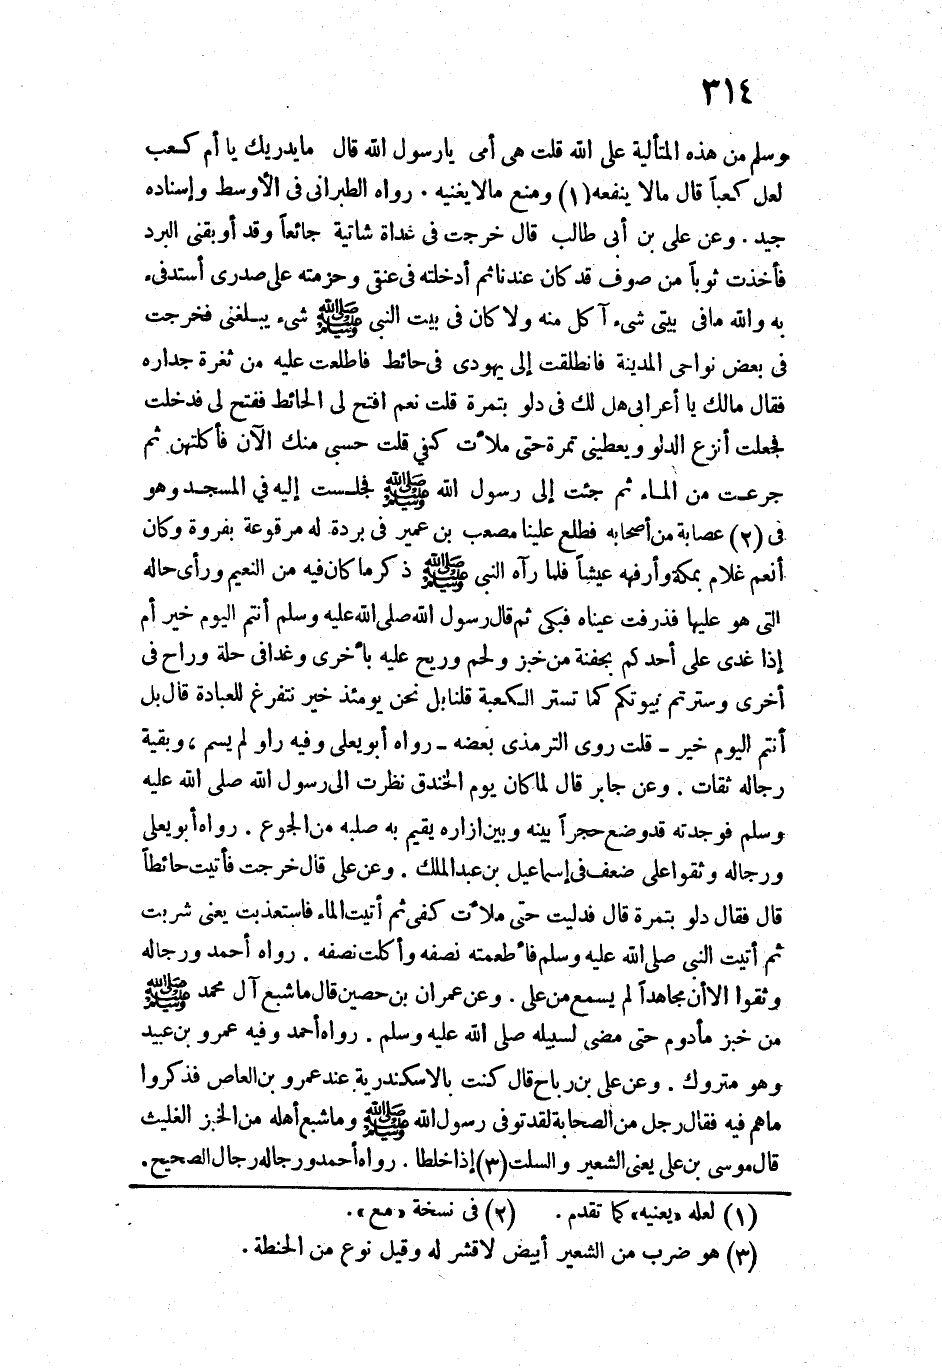 ٣١٤
وسلم من هذه المتألية على الله قلت هى أمى يارسول الله قال مايدريك يا أم كعب
لعل كعباً قال مالا ينفعه (١) ومنع مالا يغنيه . رواه الطبرانى فى الأوسط وإسناده
جيد . وعن على بن أبى طالب قال خرجت فى غداة شاتية جائعاً وقد أوبقنى البرد
فأخذت ثوباً من صوف قد كان عندنا ثم أدخلته فى عنقى وحزمته على صدرى أستدفىء
به والله مافى بيتى شىء آكل منه ولا كان فى بيت النبي ﷺ شىء يبلغنى فخرجت
فى بعض نواحى المدينة فانطلقت إلى يهودى فى حائط فاطلعت عليه من ثغرة جداره
فقال مالك يا أعرابى هل لك فى دلو بتمرة قلت نعم افتح لى الحائط ففتح لى فدخلت
فجعلت أنزع الدلو ويعطينى تمرة حتى ملأت كفي قلت حسبي منك الآن فأكلتهن ثم
جرعت من الماء ثم جئت إلى رسول الله ﷺ فجلست إليه في المسجد وهو
فى (٢) عصابة من أصحابه فطلع علينا مصعب بن عمير فى بردة له مرقوعة بفروة وكان
أنعم غلام بمكة وأرفهه عيشاً فلما رآه النبي ﷺ ذكر ما كان فيه من النعيم ورأى حاله
التى هو عليها فذرفت عيناه فبكى ثم قال رسول الله صلى الله عليه وسلم أنتم اليوم خير أم
إذا غدى على أحدكم بجفنة من خبز ولحم وريح عليه بأخرى وغدا فى حلة وراح فى
أخرى وسترتم بيوتكم كما تستر الكعبة قلنا بل نحن يومئذ خير نتفرغ للعبادة قال بل
أنتم اليوم خير - قلت روى الترمذى بعضه - رواه أبو يعلى وفيه راو لم يسم ، وبقية
رجاله ثقات . وعن جابر قال لما كان يوم الخندق نظرت الى رسول الله صلى الله عليه
وسلم فوجدته قد وضع حجراً بينه وبين ازاره يقيم به صلبه من الجوع . رواه أبو يعلى
ورجاله وثقوا على ضعف فى إسماعيل بن عبد الملك . وعن على قال خرجت فأتيت حائطاً
قال فقال دلو بتمرة قال فدليت حتى ملأت كفى ثم أتيت الماء فاستعذبت يعنى شربت
ثم أتيت النبي صلى الله عليه وسلم فأطعمته نصفه وأكلت نصفه . رواه أحمد ورجاله
وثقوا الا أن مجاهداً لم يسمع من على . وعن عمران بن حصين قال ما شبع آل محمد ﷺ
من خبز مأدوم حتى مضى لسبيله صلى الله عليه وسلم . رواه أحمد وفيه عمرو بن عبيد
وهو متروك . وعن على بن رباح قال كنت بالاسكندرية عند عمرو بن العاص فذكروا
ماهم فيه فقال رجل من الصحابة لقد توفى رسول الله ﷺ وما شبع أهله من الخبز الغليث
قال موسى بن على يعنى الشعير والسلت (٣) إذا خلطا . رواه أحمد ورجاله رجال الصحيح .
(١) لعله «يعنيه» كما تقدم . (٢) فى نسخة «مع» .
(٣) هو ضرب من الشعير أبيض لا قشر له وقيل نوع من الحنطة .